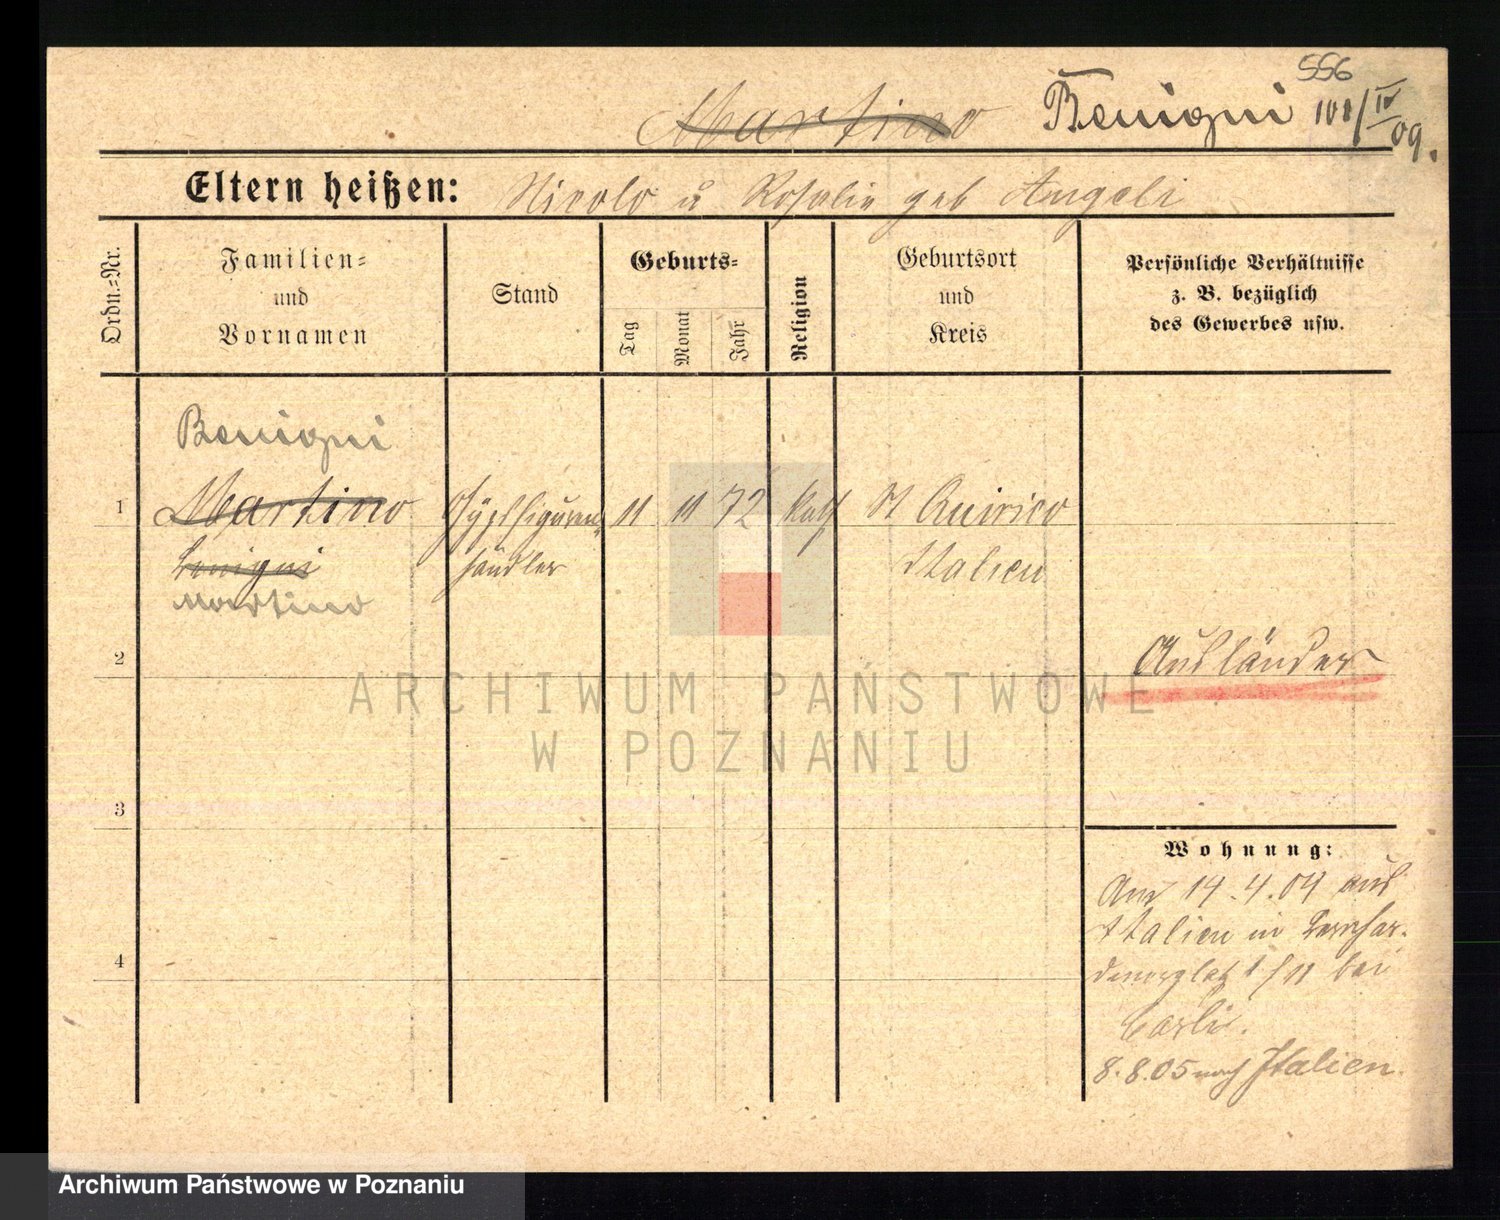 556
Martino Benigni 108/IV 09.
Eltern heißen: Nicolo u Rosalie geb Angeli
Ordn.=Nr.
Familien= und Vornamen
Stand
Geburts=
Tag
Monat
Jahr
Religion
Geburtsort und Kreis
Persönliche Verhältnisse
z. B. bezüglich
des Gewerbes usw.
Benigni
1 Martino Gypsfiguren 11 11 72 kath St Quirico
Benigni händler Italien
Martino
2 Ausländer
3
Wohnung:
Am 14.4.04 aus
Italien in Bernhar-
4 dinerplatz 1/11 bei
Carli.
8.8.05 nach Italien.
ARCHIWUM PAŃSTWOWE
W POZNANIU
Archiwum Państwowe w Poznaniu